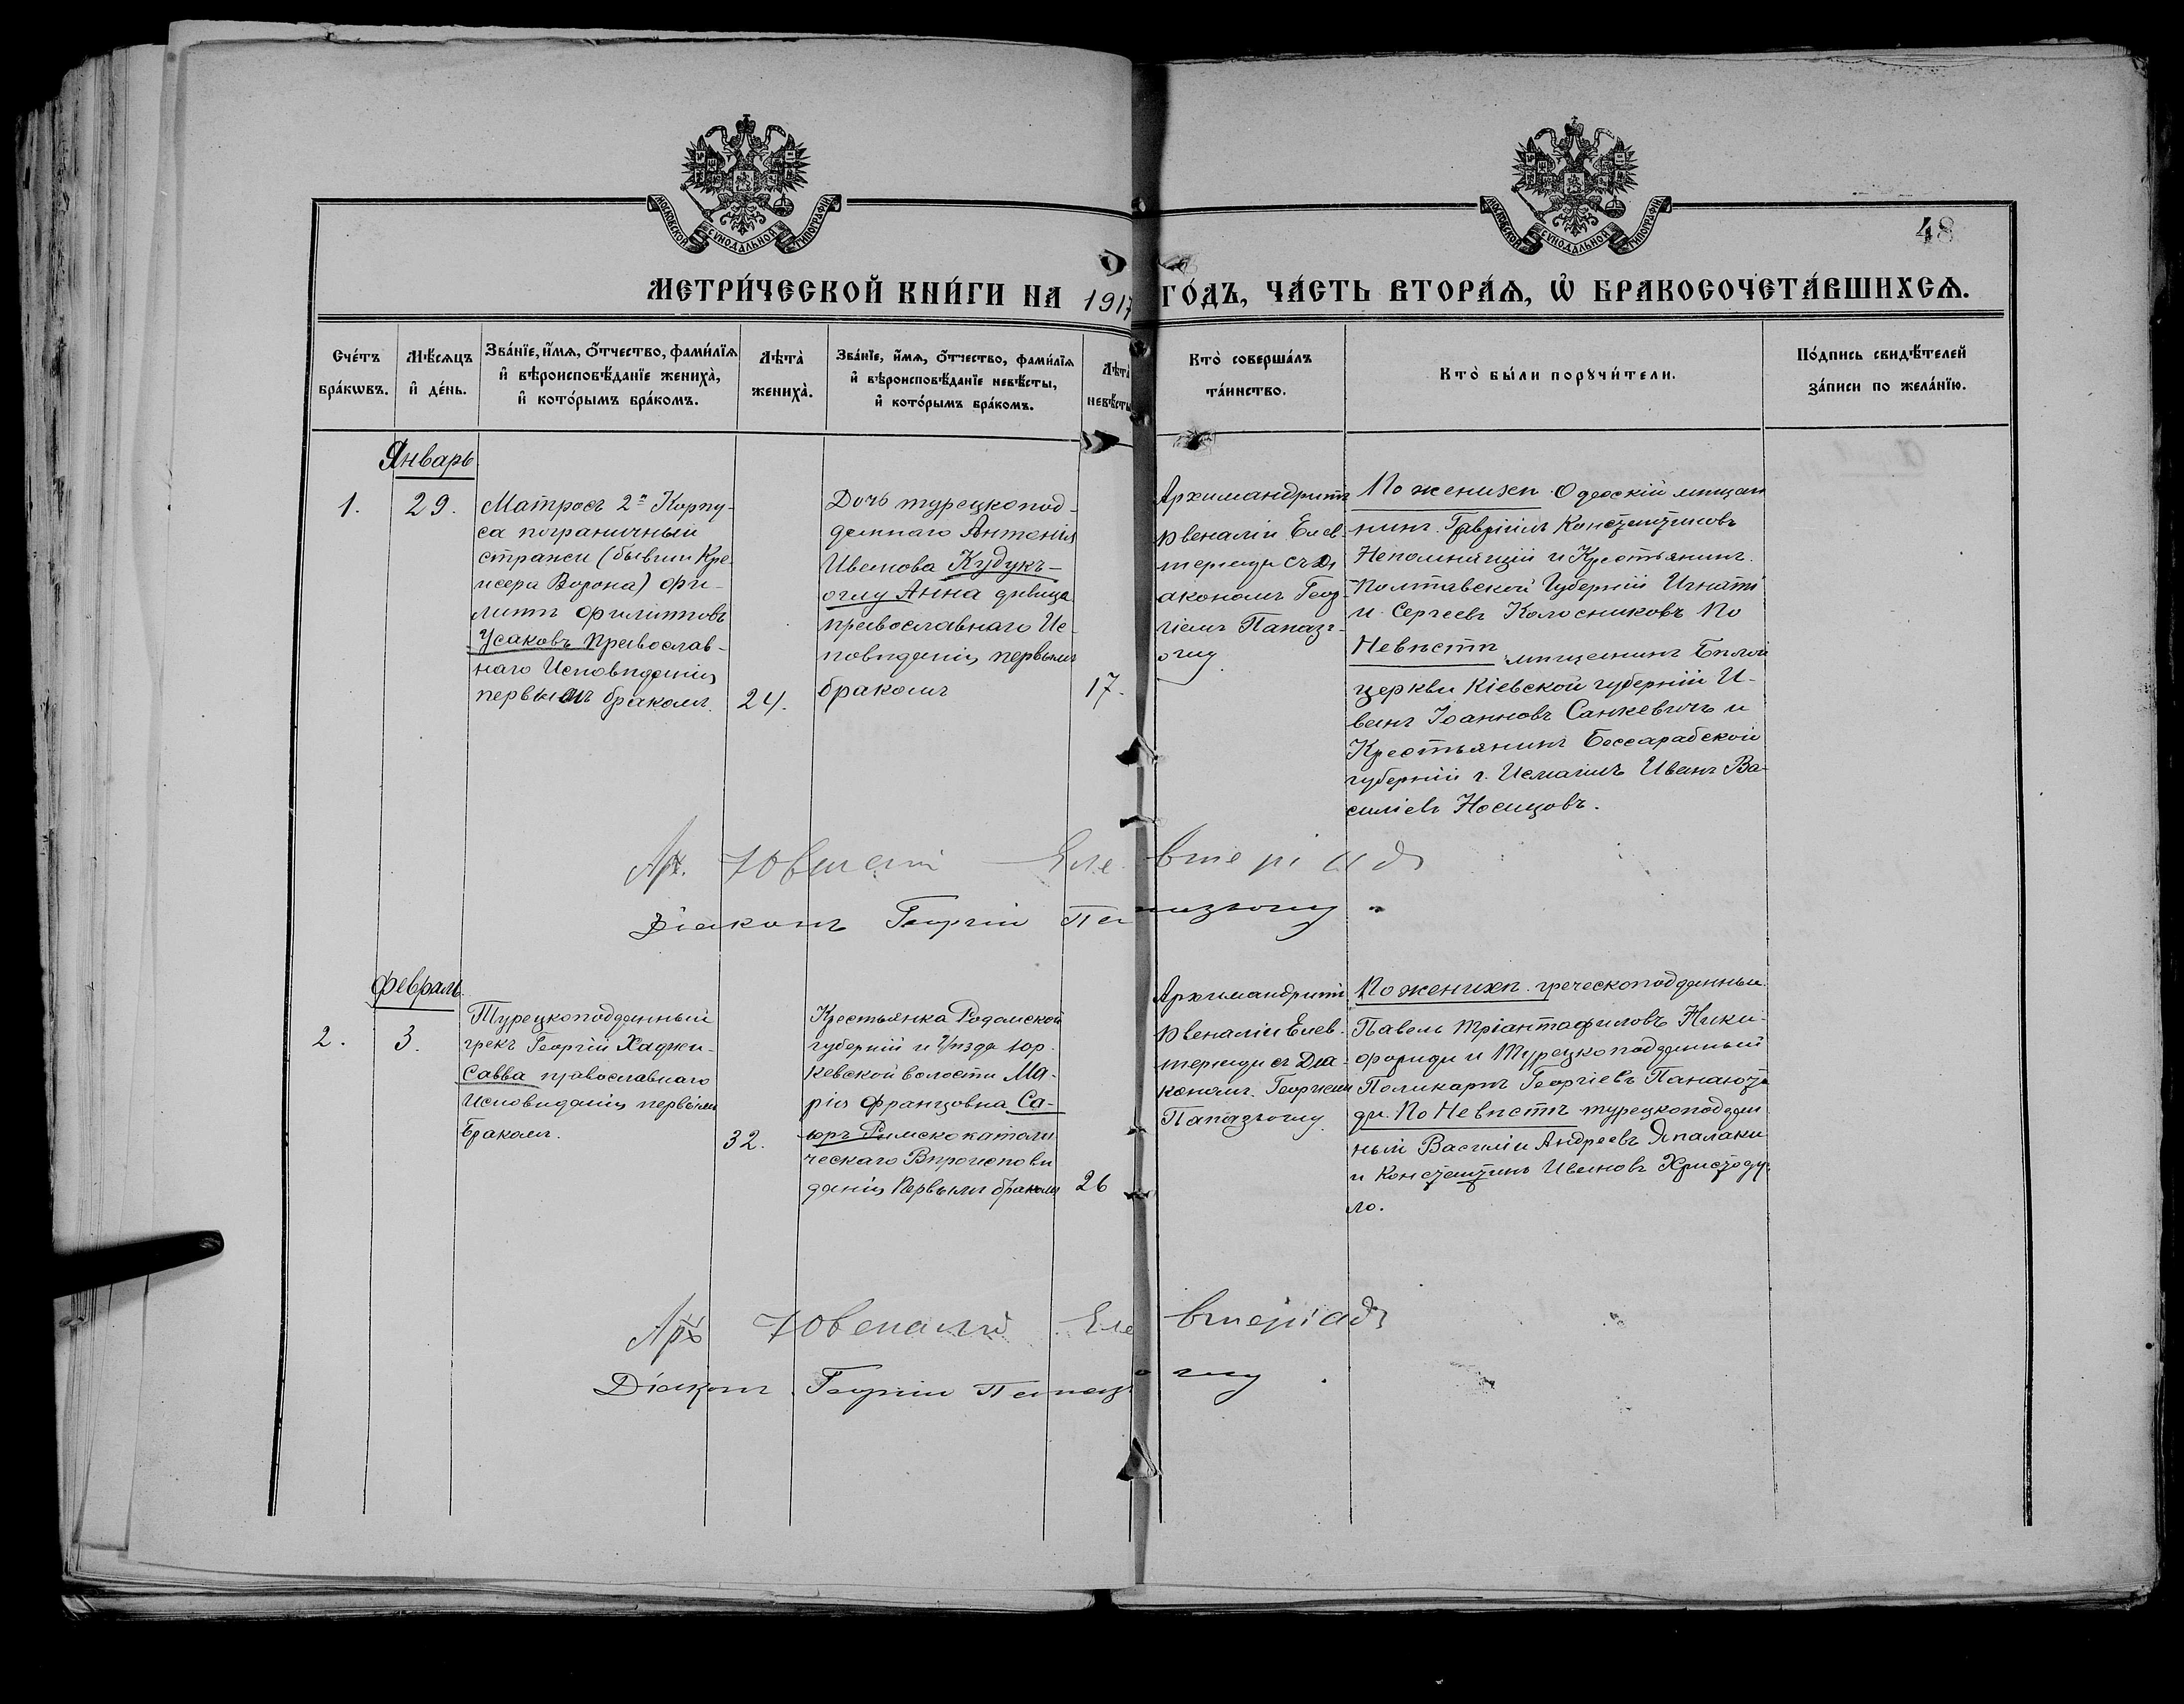 МОСКОВСКОЙ СѴНОДАЛЬНОЙ ТИПОГРАФІИ
МОСКОВСКОЙ СѴНОДАЛЬНОЙ ТИПОГРАФІИ
48
МЕТРИ́ЧЕСКОЙ КНИ́ГИ НА 1917 ГО́ДЪ, ЧА́СТЬ ВТОРА́Ѧ, Ѡ҆ БРАКОСОЧЕТА́ВШИХСѦ.
Сче́тъ бра́кѡвъ.
Мѣ́сѧцъ и҆ де́нь.
Зва́нїе, и҆́мѧ, ѻ҆́тчество, фами́лїѧ
и҆ вѣроисповѣ́данїе жениха̀,
и҆ кото́рымъ бра́комъ.
Лѣта̀ жениха̀.
Зва́нїе, и҆́мѧ, ѻ҆́тчество, фами́лїѧ
и҆ вѣроисповѣ́данїе невѣ́сты,
и҆ кото́рымъ бра́комъ.
Лѣта̀ невѣ́сты
Кто̀ соверша́лъ
та́инство.
Кто̀ бы́ли порꙋчи́тели.
По́дпись свидѣ́телей
за́писи по жела́нїю.
Январь
1.
29.
Матросъ 2го Корпу-
са пограничный
стражи (бывши Кре
йсера Ворона) Фи-
липъ Филіпповъ
Усаковъ Православ-
наго Исповѣданія
первымъ бракомъ.
24.
Дочь турецкопод-
даннаго Антонія
Иванова Кудукъ-
оглу Анна дѣвица
православнаго Ис-
повѣданія первымъ
бракомъ
17.
Архимандритъ
Ювеналій Елев-
теріади съ Ді
акономъ Геор-
гіемъ Папазъ-
оглу
По женихѣ Одесскій мѣщан
нинъ Гавріилъ Константиновъ
Непомнящій и Крестьянинъ
Полтавской Губерніи Игнаті
й Сергеевъ Колосниковъ По
Невѣстѣ мѣщанинъ Бѣлой
церкви Кіевской губерніи И-
ванъ Іоанновъ Санкевичъ и
Крестьянинъ Бессарабской
губерніи г. Исмаилъ Иванъ Ва-
силіевъ Носицовъ.
Арх. Ювеналій Елевтеріадъ
Діаконъ Георгій Папазъоглу
Февраль
2.
3.
Турецкоподданный
грекъ Георгій Хаджи-
Савва православнаго
Исповѣданія первымъ
бракомъ.
32.
Крестьянка Радомской
губерніи и Уѣзда Юр
кевской волости Ма-
рія Францовна Са-
юръ Римско католи
ческаго Вѣроисповѣ
данія Первымъ бракомъ
26
Архимандритъ
Ювеналій Елев-
теріади съ Діа-
кономъ Георгіемъ
Папазъоглу
По женихѣ греческоподданный
Павелъ Тріантафиловъ Ники-
фориди и Турецкоподданный
Поликарпъ Георгіевъ Панаіоти
ди. По Невѣстѣ турецкоподдан
ный Василій Андреевъ Япалаки
и Константинъ Ивановъ Христоду
ло.
Арх Ювеналій Елевтеріадъ
Діаконъ Георгій Папазъоглу